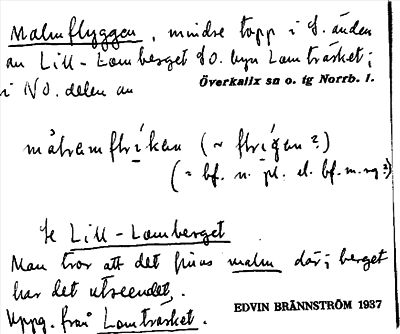 Malmflyggen, mindre topp i S. änden
av Lill-Lomberget SO. byn Lomträsket;
i NO. delen av
Överkalix sn o. tg Norrb. l.
(~
(= bf. n. pl. el. bf. m. sg?)
Se Lill-Lomberget
Man tror att det finns malm där; berget
har det utseendet.
Uppg. från Lomträsket.
EDVIN BRÄNNSTRÖM 1937